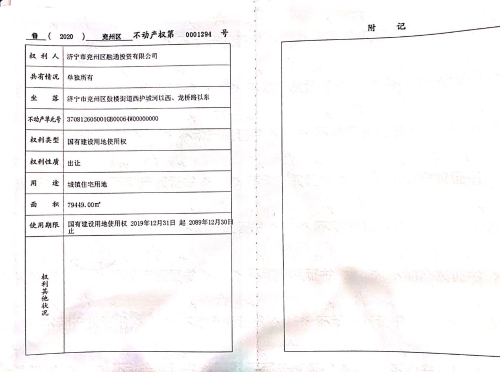 鲁 ( 2020 ) 兖州区 不动产权第 0001294 号
权利人 济宁市兖州区融通投资有限公司
共有情况 单独所有
坐落 济宁市兖州区鼓楼街道西护城河以西、龙桥路以东
不动产单元号 370812606001GB00064W00000000
权利类型 国有建设用地使用权
权利性质 出让
用途 城镇住宅用地
面积 79449.00㎡
使用期限 国有建设用地使用权 2019年12月31日 起 2089年12月30日
止
权利其他状况
附记